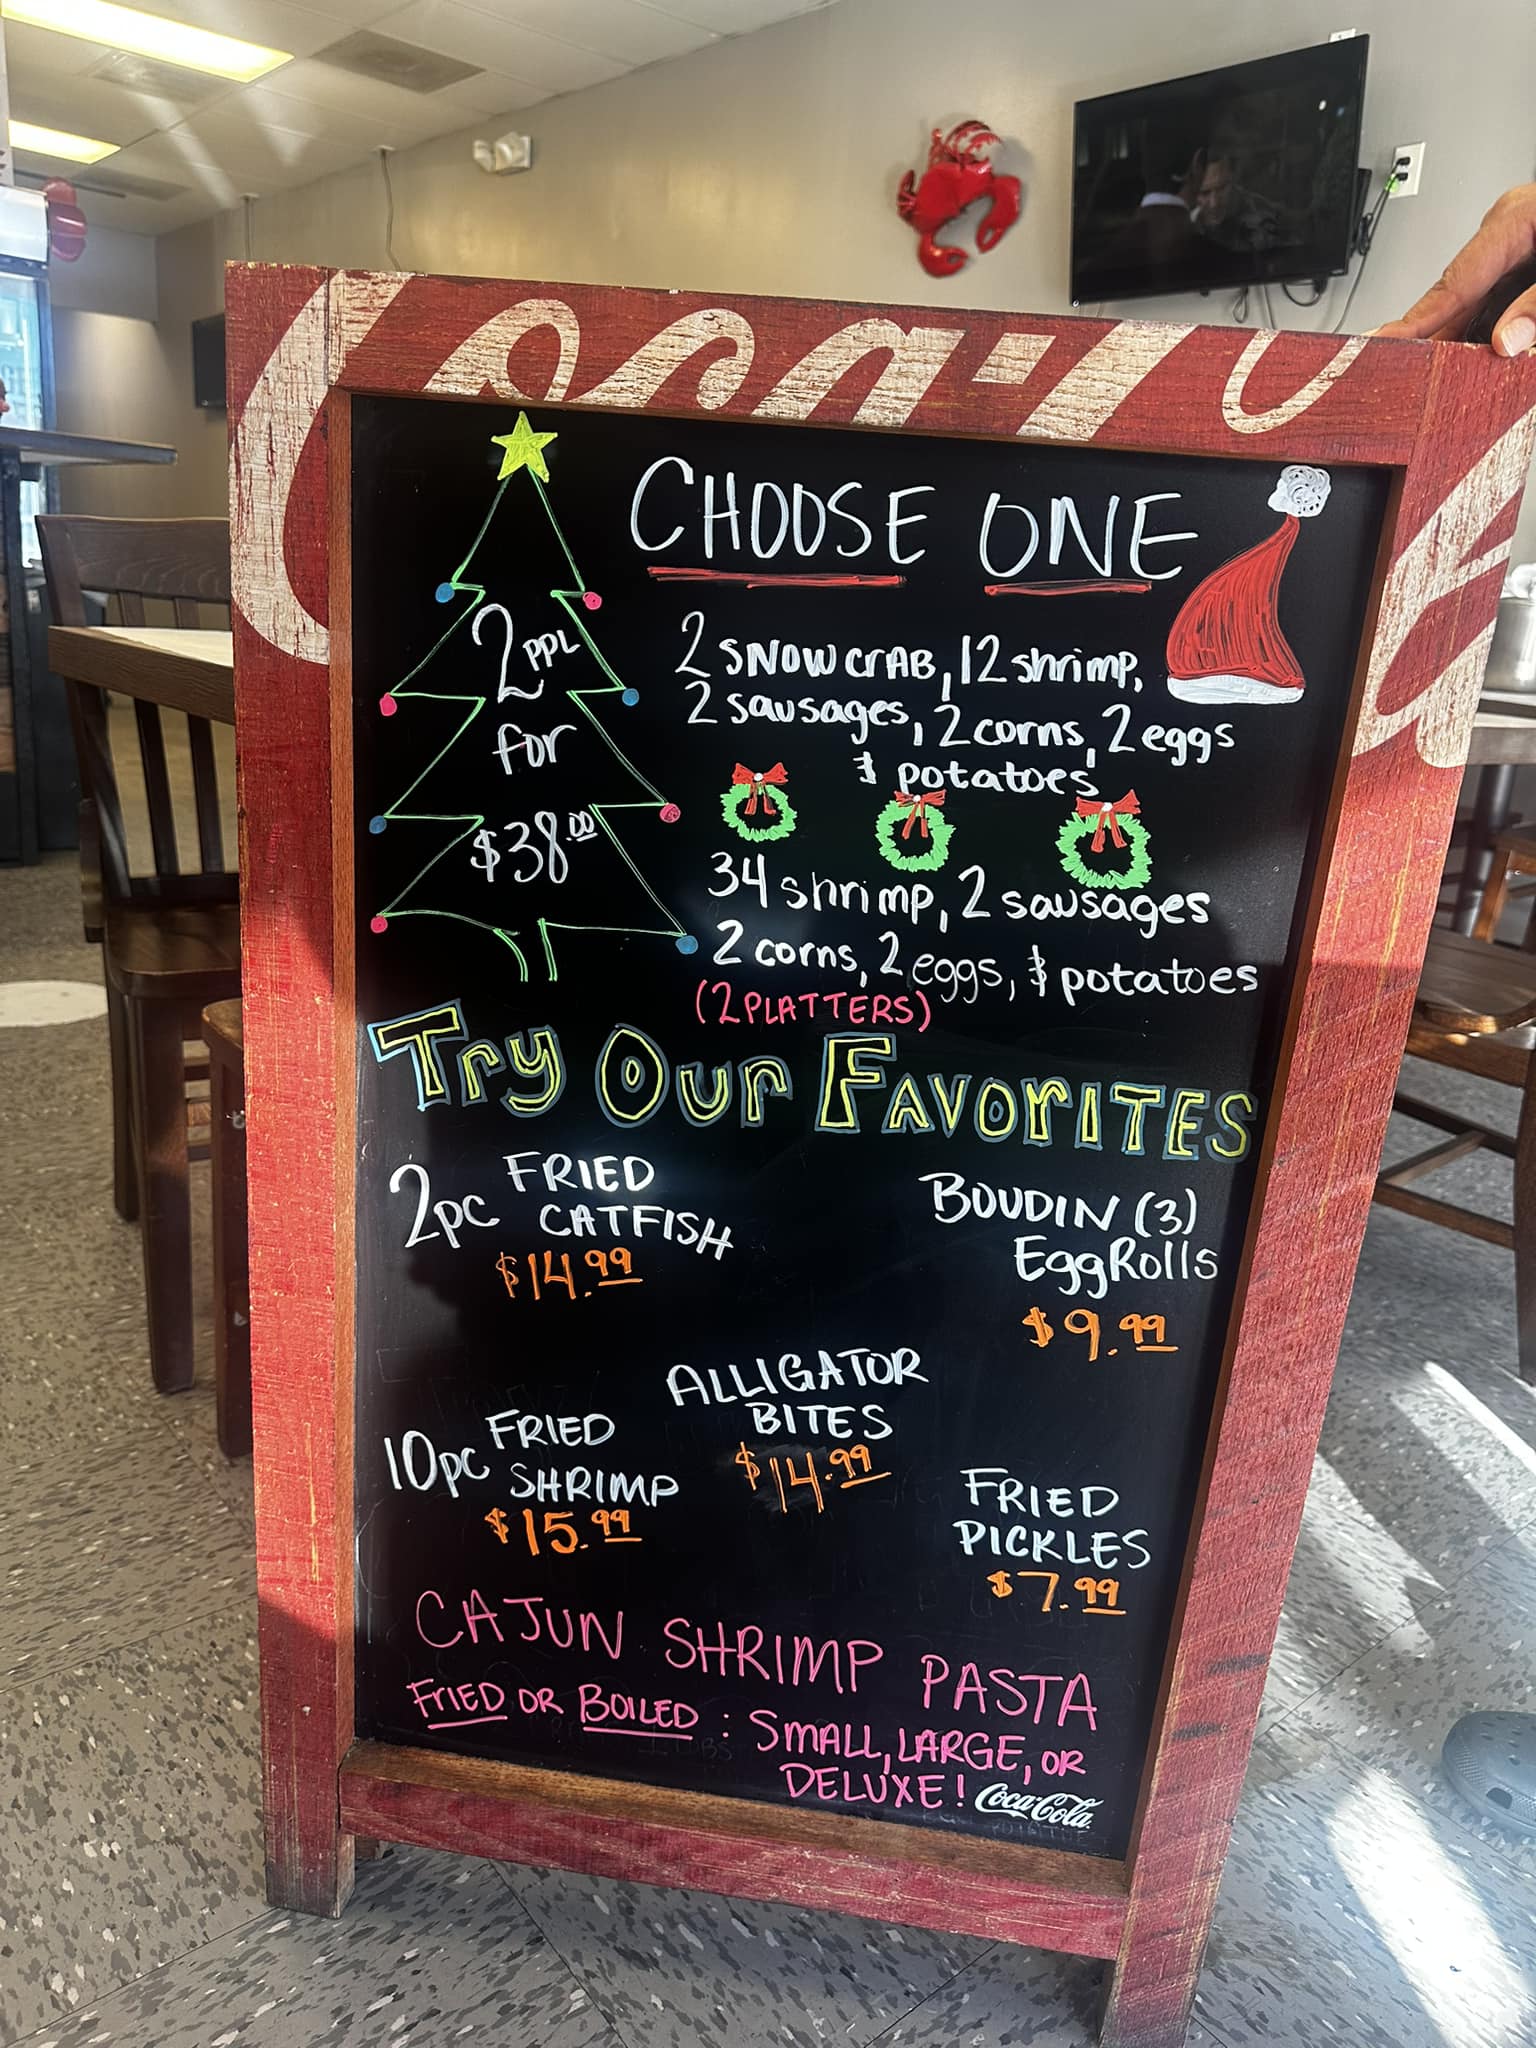 Coca-Co
CHOOSE ONE
2 PPL
for
$38.00
2 SNOW CrAB, 12 shrimp,
2 sausages, 2 corns, 2 eggs
& potatoes
34 shrimp, 2 sausages
2 corns, 2 eggs, & potatoes
(2 PLATTERS)
Try Our FAVOrITES
2pc FRIED
CATFISH
$14.99
BOUDIN (3)
EggRolls
$9.99
ALLIGATOR
BITES
$14.99
10pc FRIED
SHRIMP
$15.99
FRIED
PICKLES
$7.99
CAJUN SHRIMP PASTA
FRIED OR BOILED : SMALL, LARGE, OR
DELUXE!
Coca-Cola